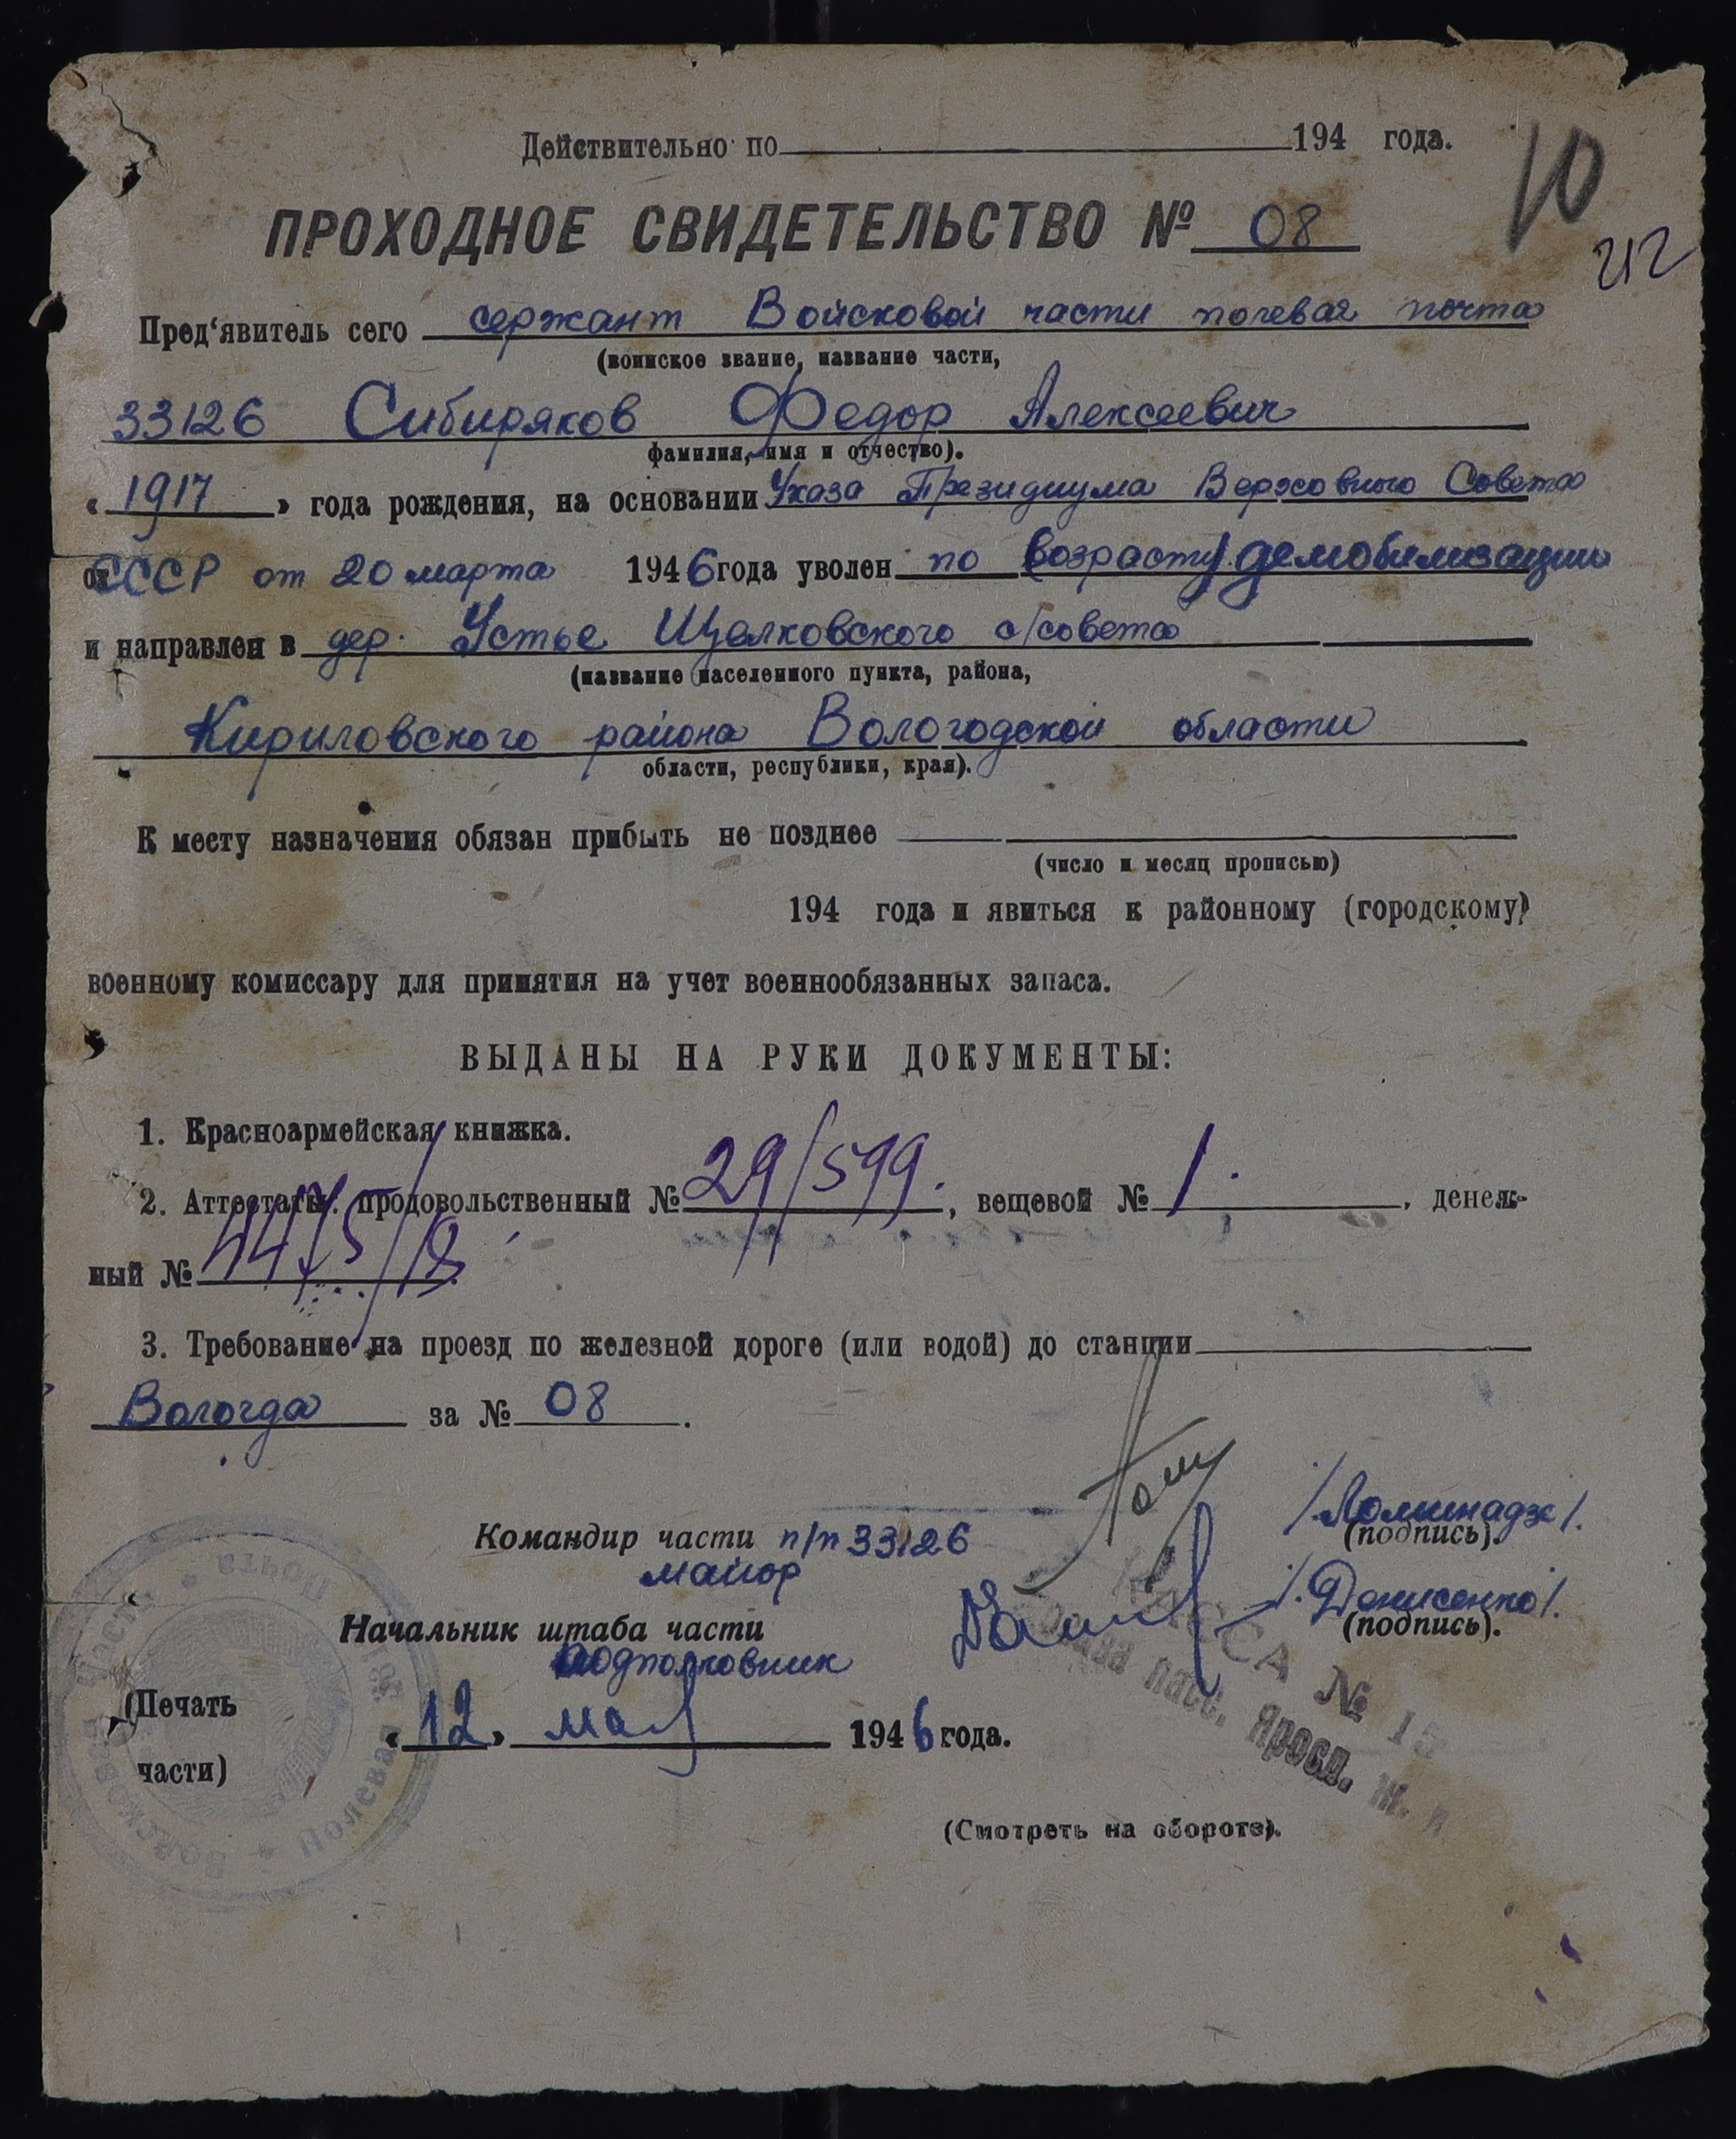 Действительно по 194 года.
10
ПРОХОДНОЕ СВИДЕТЕЛЬСТВО № 08
212
Пред'явитель сего сержант Войсковой части полевая почта
(воинское звание, название части,
33126 Сибиряков Федор Алексеевич
фамилия, имя и отчество).
« 1917 » года рождения, на основании Указа Президиума Верховного Совета
от СССР от 20 марта 1946 года уволен по возрасту демобилизации
и направлен в дер. Устье Щелковского с/совета
(название населенного пункта, района,
Кириловского района Вологодской области
области, республики, края).
К месту назначения обязан прибыть не позднее
(число и месяц прописью)
194 года и явиться к районному (городскому)
военному комиссару для принятия на учет военнообязанных запаса.
ВЫДАНЫ НА РУКИ ДОКУМЕНТЫ:
1. Красноармейская книжка.
2. Аттестаты: продовольственный № 29/599., вещевой № 1. , денеж-
ный №
3. Требование на проезд по железной дороге (или водой) до станции
Вологда за № 08 .
Командир части п/п 33126 /Ломинадзе/.
майор (подпись).
Начальник штаба части /.Денисенко/.
подполковник (подпись).
(Печать
части)
« 12 » мая 1946 года.
Войсковая часть • Полевая почта
КАССА № 15
пасс. Яросл. ж.
(Смотреть на обороте).